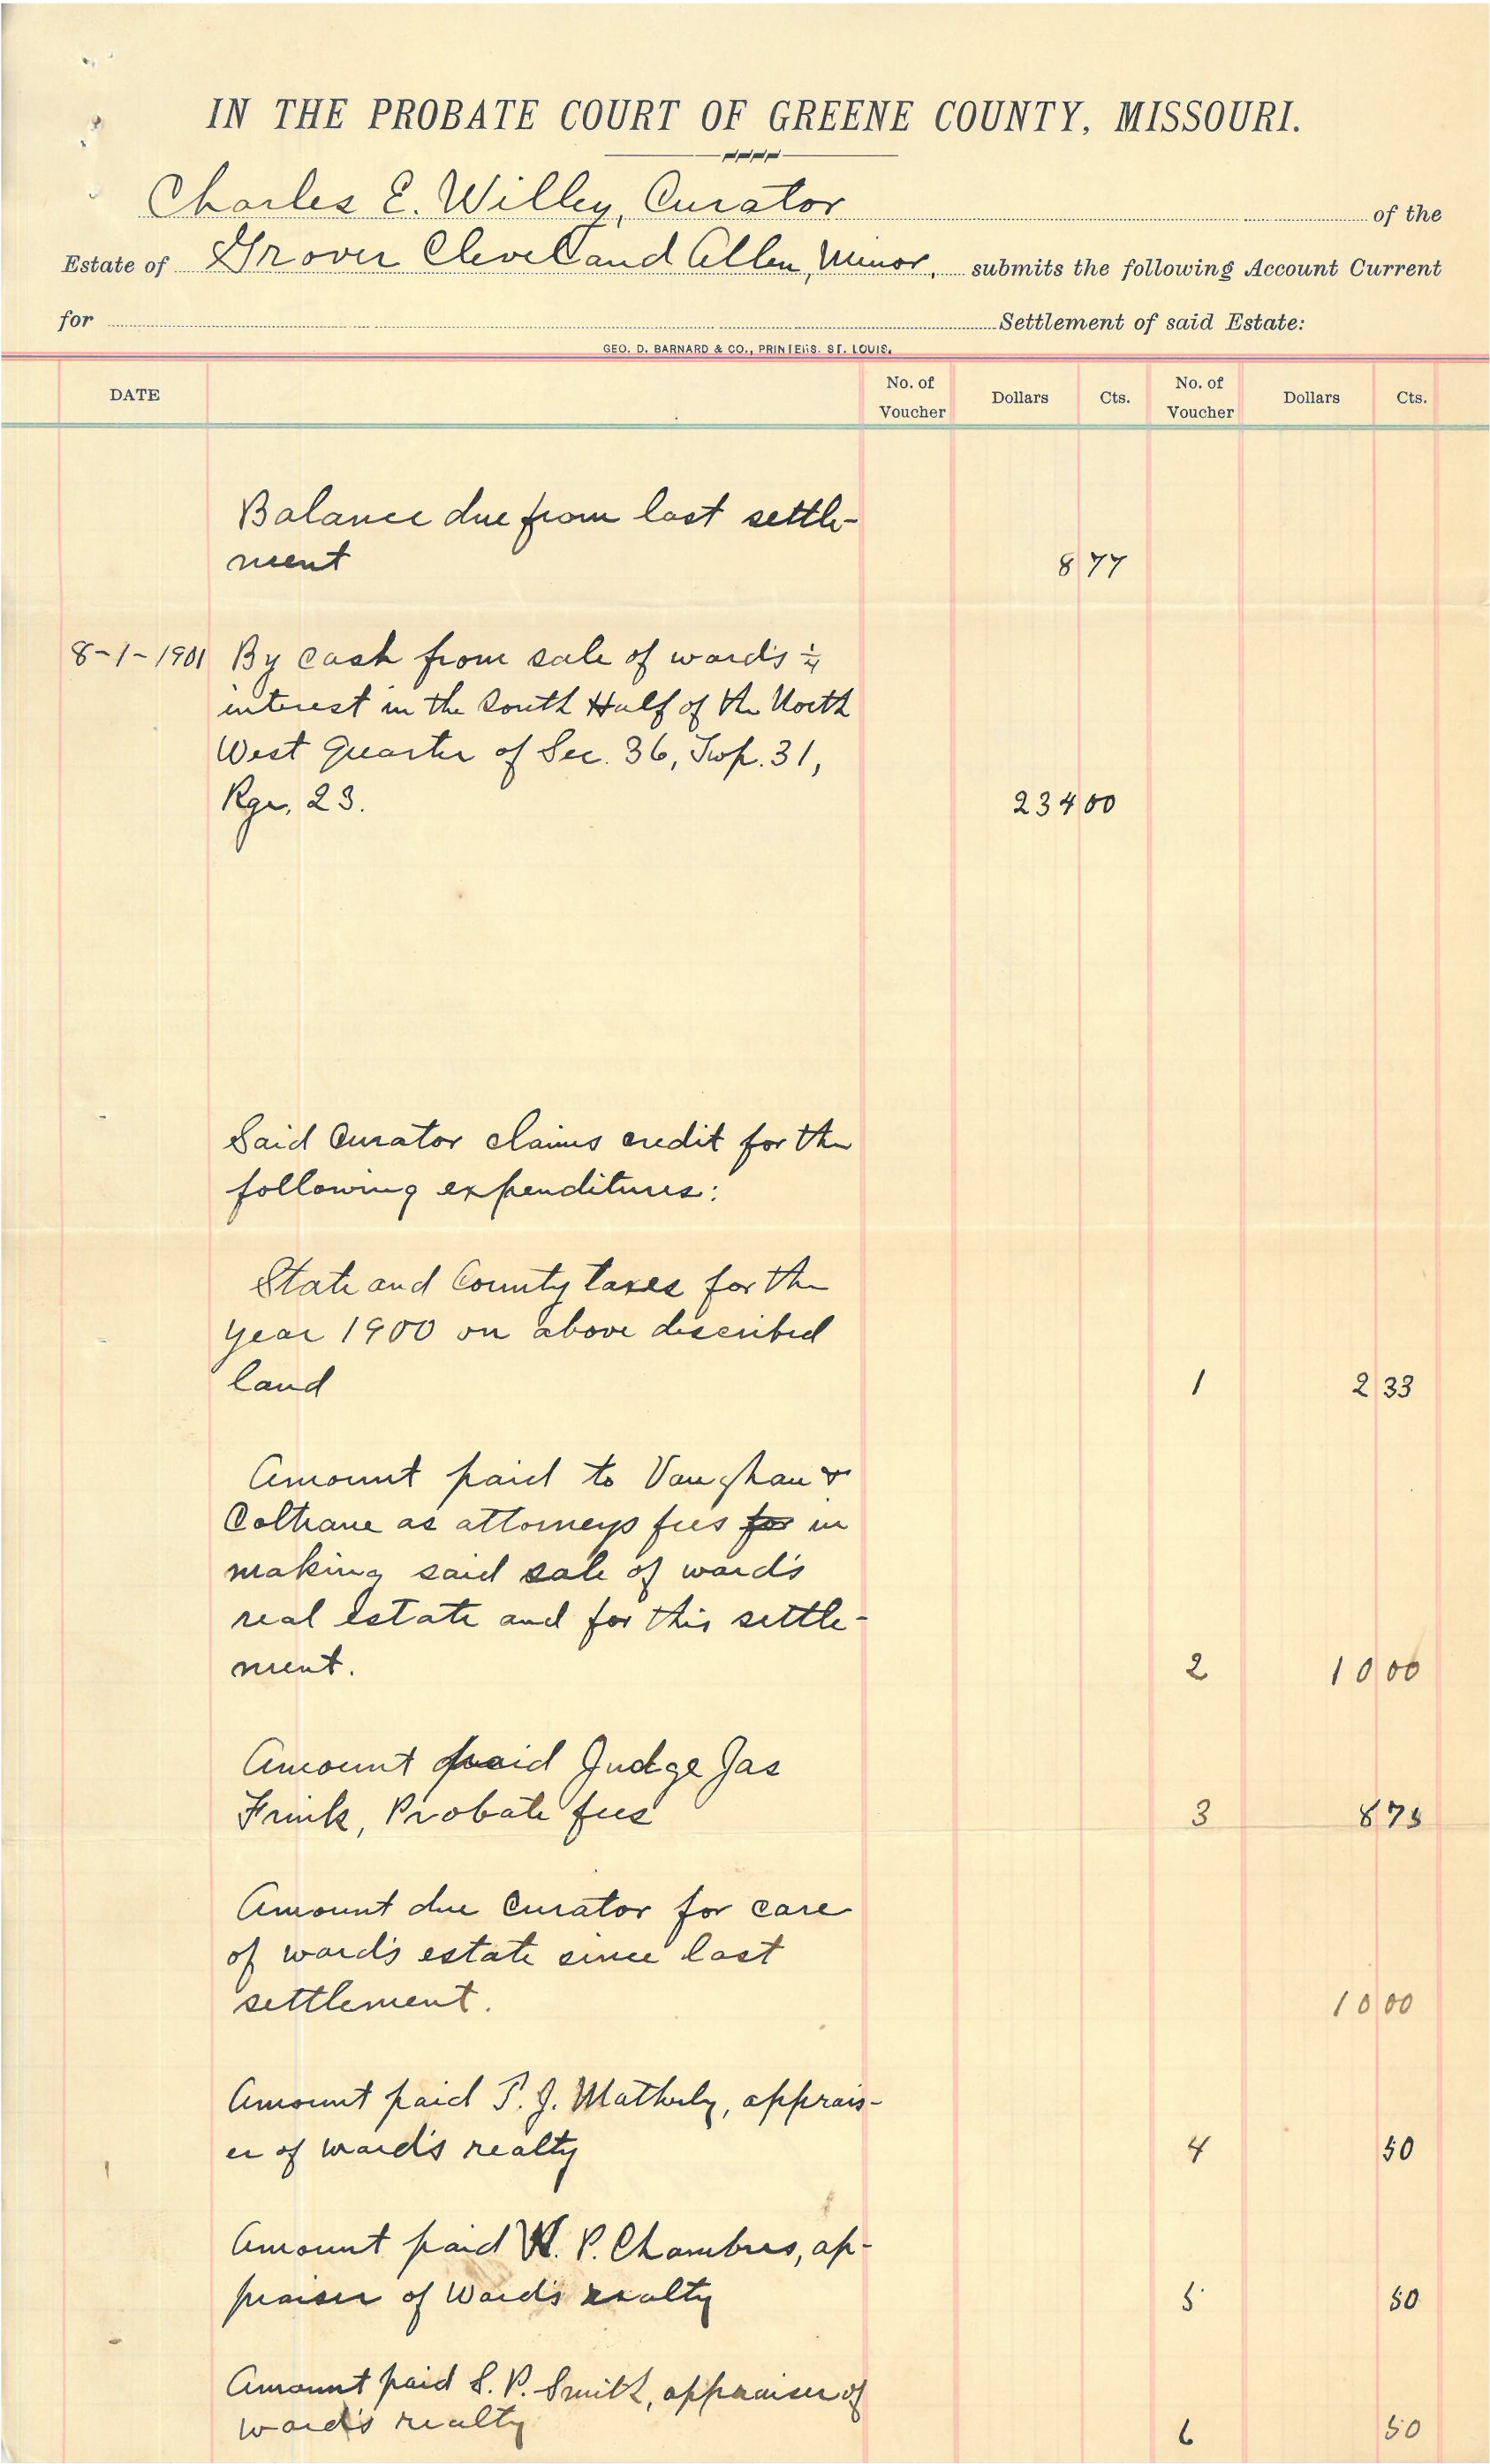 IN THE PROBATE COURT OF GREENE COUNTY, MISSOURI.
Charles E. Willey, Curator of the
Estate of Grover Cleveland Allen, Minor, submits the following Account Current
for Settlement of said Estate:
GEO. D. BARNARD & CO., PRINTERS. ST. LOUIS.
DATE No. of Voucher Dollars Cts. No. of Voucher Dollars Cts.
Balance due from last settle-
ment 8 77
8-1-1901 By cash from sale of ward's 1/4
interest in the South Half of the North
West Quarter of Sec. 36, Twp. 31,
Rge. 23. 234 00
Said Curator claims credit for the
following expenditures:
State and County taxes for the
year 1900 on above described
land 1 2 33
Amount paid to Vaughan &
Coltrane as attorneys fees for in
making said sale of ward's
real estate and for this settle-
ment. 2 10 00
Amount paid Judge Jas
Frink, Probate fees 3 8 75
Amount due Curator for care
of ward's estate since last
settlement. 10 00
Amount paid T. J. Matherly, apprais-
er of ward's realty 4 50
Amount paid W. P. Chambers, ap-
praiser of Ward's realty 5 50
Amount paid S. P. Smith, appraiser of
ward's realty 6 50